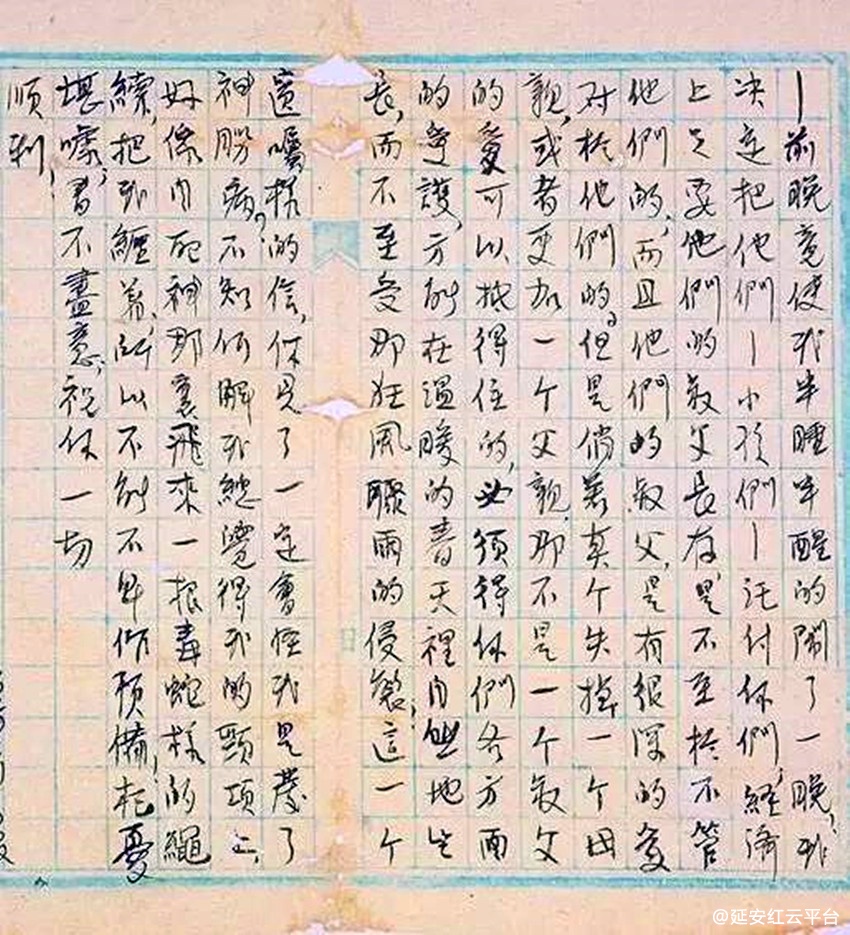 —前晚竟使我半睡半醒的鬧了一晚,我
决定把他們—小孩們—託付你們,經濟
上只要他們的叔父長存,是不至於不管
他們的,而且他們的叔父,是有很深的愛
对於他們的。但是倘若真个失掉一个母
親,或者更加一个父親,那不是一个叔父
的愛可以抵得住的,必須得你們各方面
的爭護,方能在溫暖的春天裡自然地生
長,而不至受那狂風驟雨的侵襲,這一个
遺囑樣的信,你見了一定會怪我是發了
神勝病,不知何解我總覺得我的頸項上,
好像自死神那裏飛來一根毒蛇樣的繩
續,把我纏着,所以不能不早作預備,杞憂
堪嚎;書不盡意,祝你一切
順利!
@延安红云平台